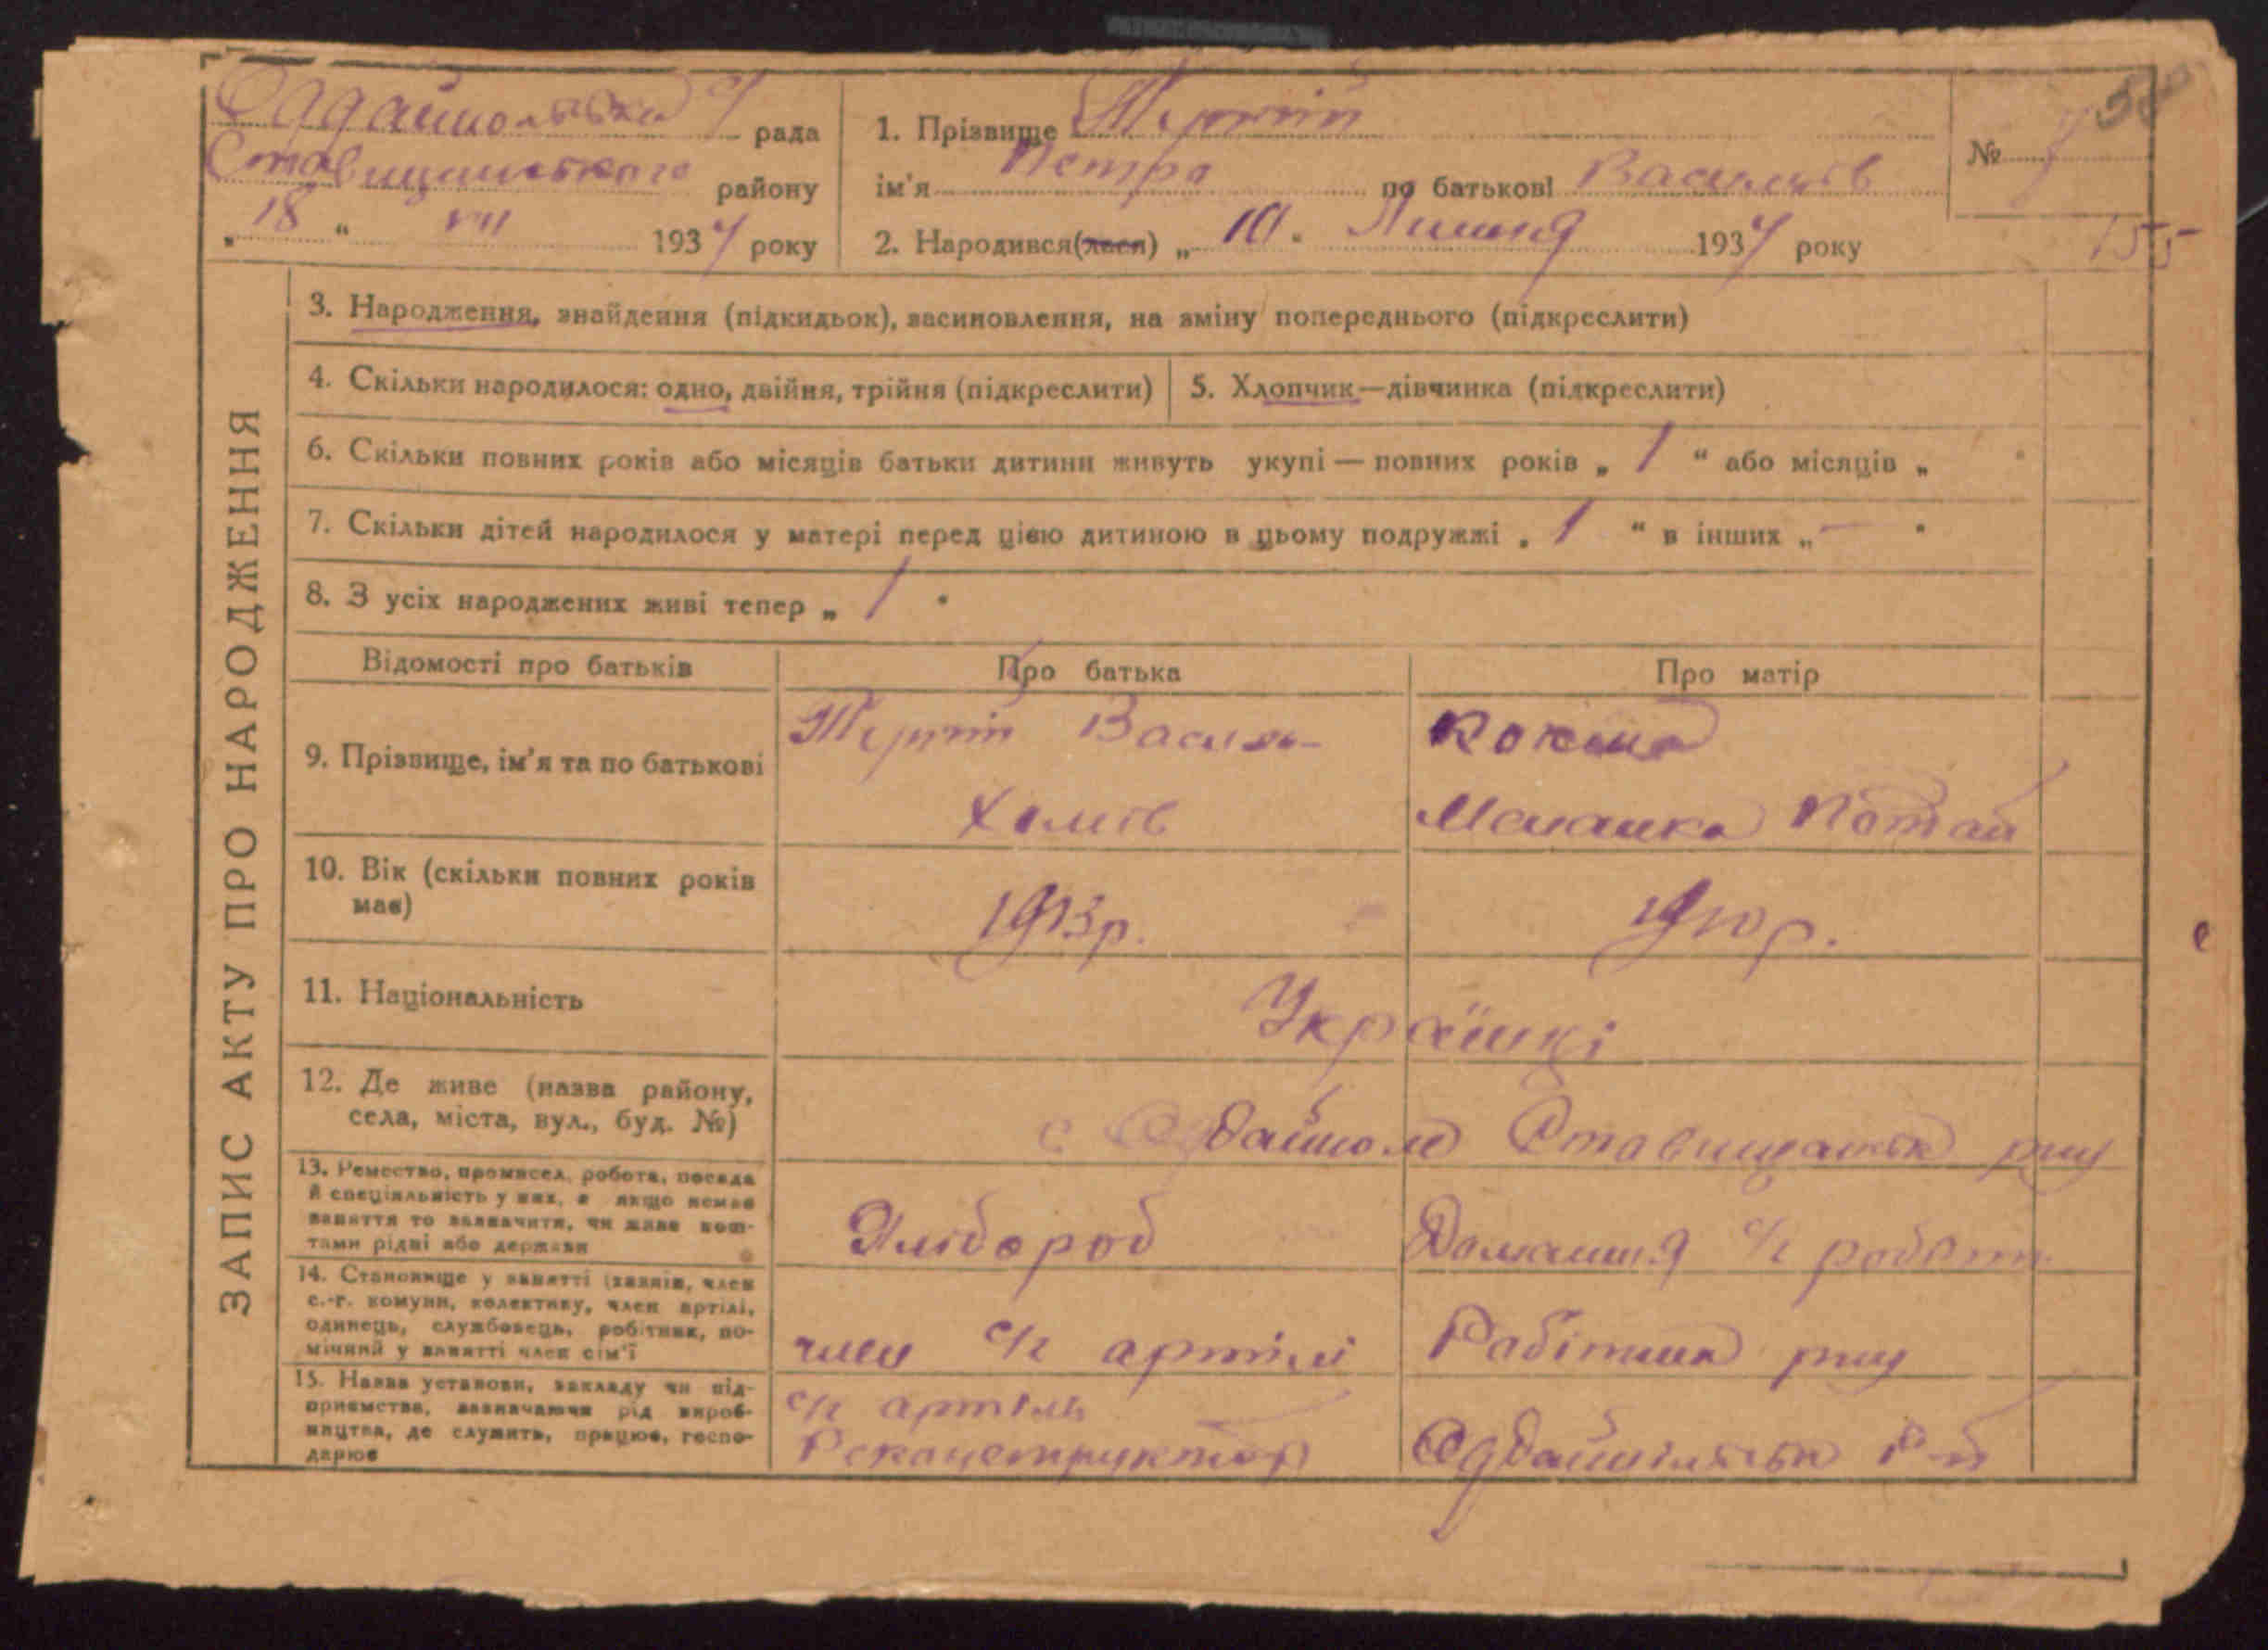 рада
Ставищанського району
„ 18 “ VII 1937 року
1. Прізвище
ім'я Петро по батькові Васильов
2. Народився(лася) „ 10 “ Липня 1937 року
№ 7
155
ЗАПИС АКТУ ПРО НАРОДЖЕННЯ
3. Народження, знайдення (підкидьок), засиновлення, на зміну попереднього (підкреслити)
4. Скільки народилося: одно, двійня, трійня (підкреслити)
5. Хлопчик—дівчинка (підкреслити)
6. Скільки повних років або місяців батьки дитини живуть укупі — повних років „ 1 “ або місяців „ “
7. Скільки дітей народилося у матері перед цією дитиною в цьому подружжі „ 1 “ в інших „ — “
8. З усіх народжених живі тепер „ 1 “
Відомості про батьків
Про батька
Про матір
9. Прізвище, ім'я та по батькові
Василь
Хомів
Меланка
10. Вік (скільки повних років має)
1913р.
1910р.
11. Національність
Українці
12. Де живе (назва району,
села, міста, вул., буд. №)
с
13. Ремество, промисел, робота, посада
й спеціяльність у них, а якщо немає
заняття то зазначити, чи живе кош-
тами рідні або держави
Хлібороб
Домашня с/г робот
14. Становище у занятті (хазяїн, член
с.-г. комуни, колективу, член артілі,
одинець, службовець, робітник, по-
мічний у занятті член сім'ї
член с/г артілі
Робітниця
15. Назва установи, закладу чи під-
приємства, зазначаючи рід вироб-
ництва, де служить, працює, госпо-
дарює
с/г артіль
Реконструктор